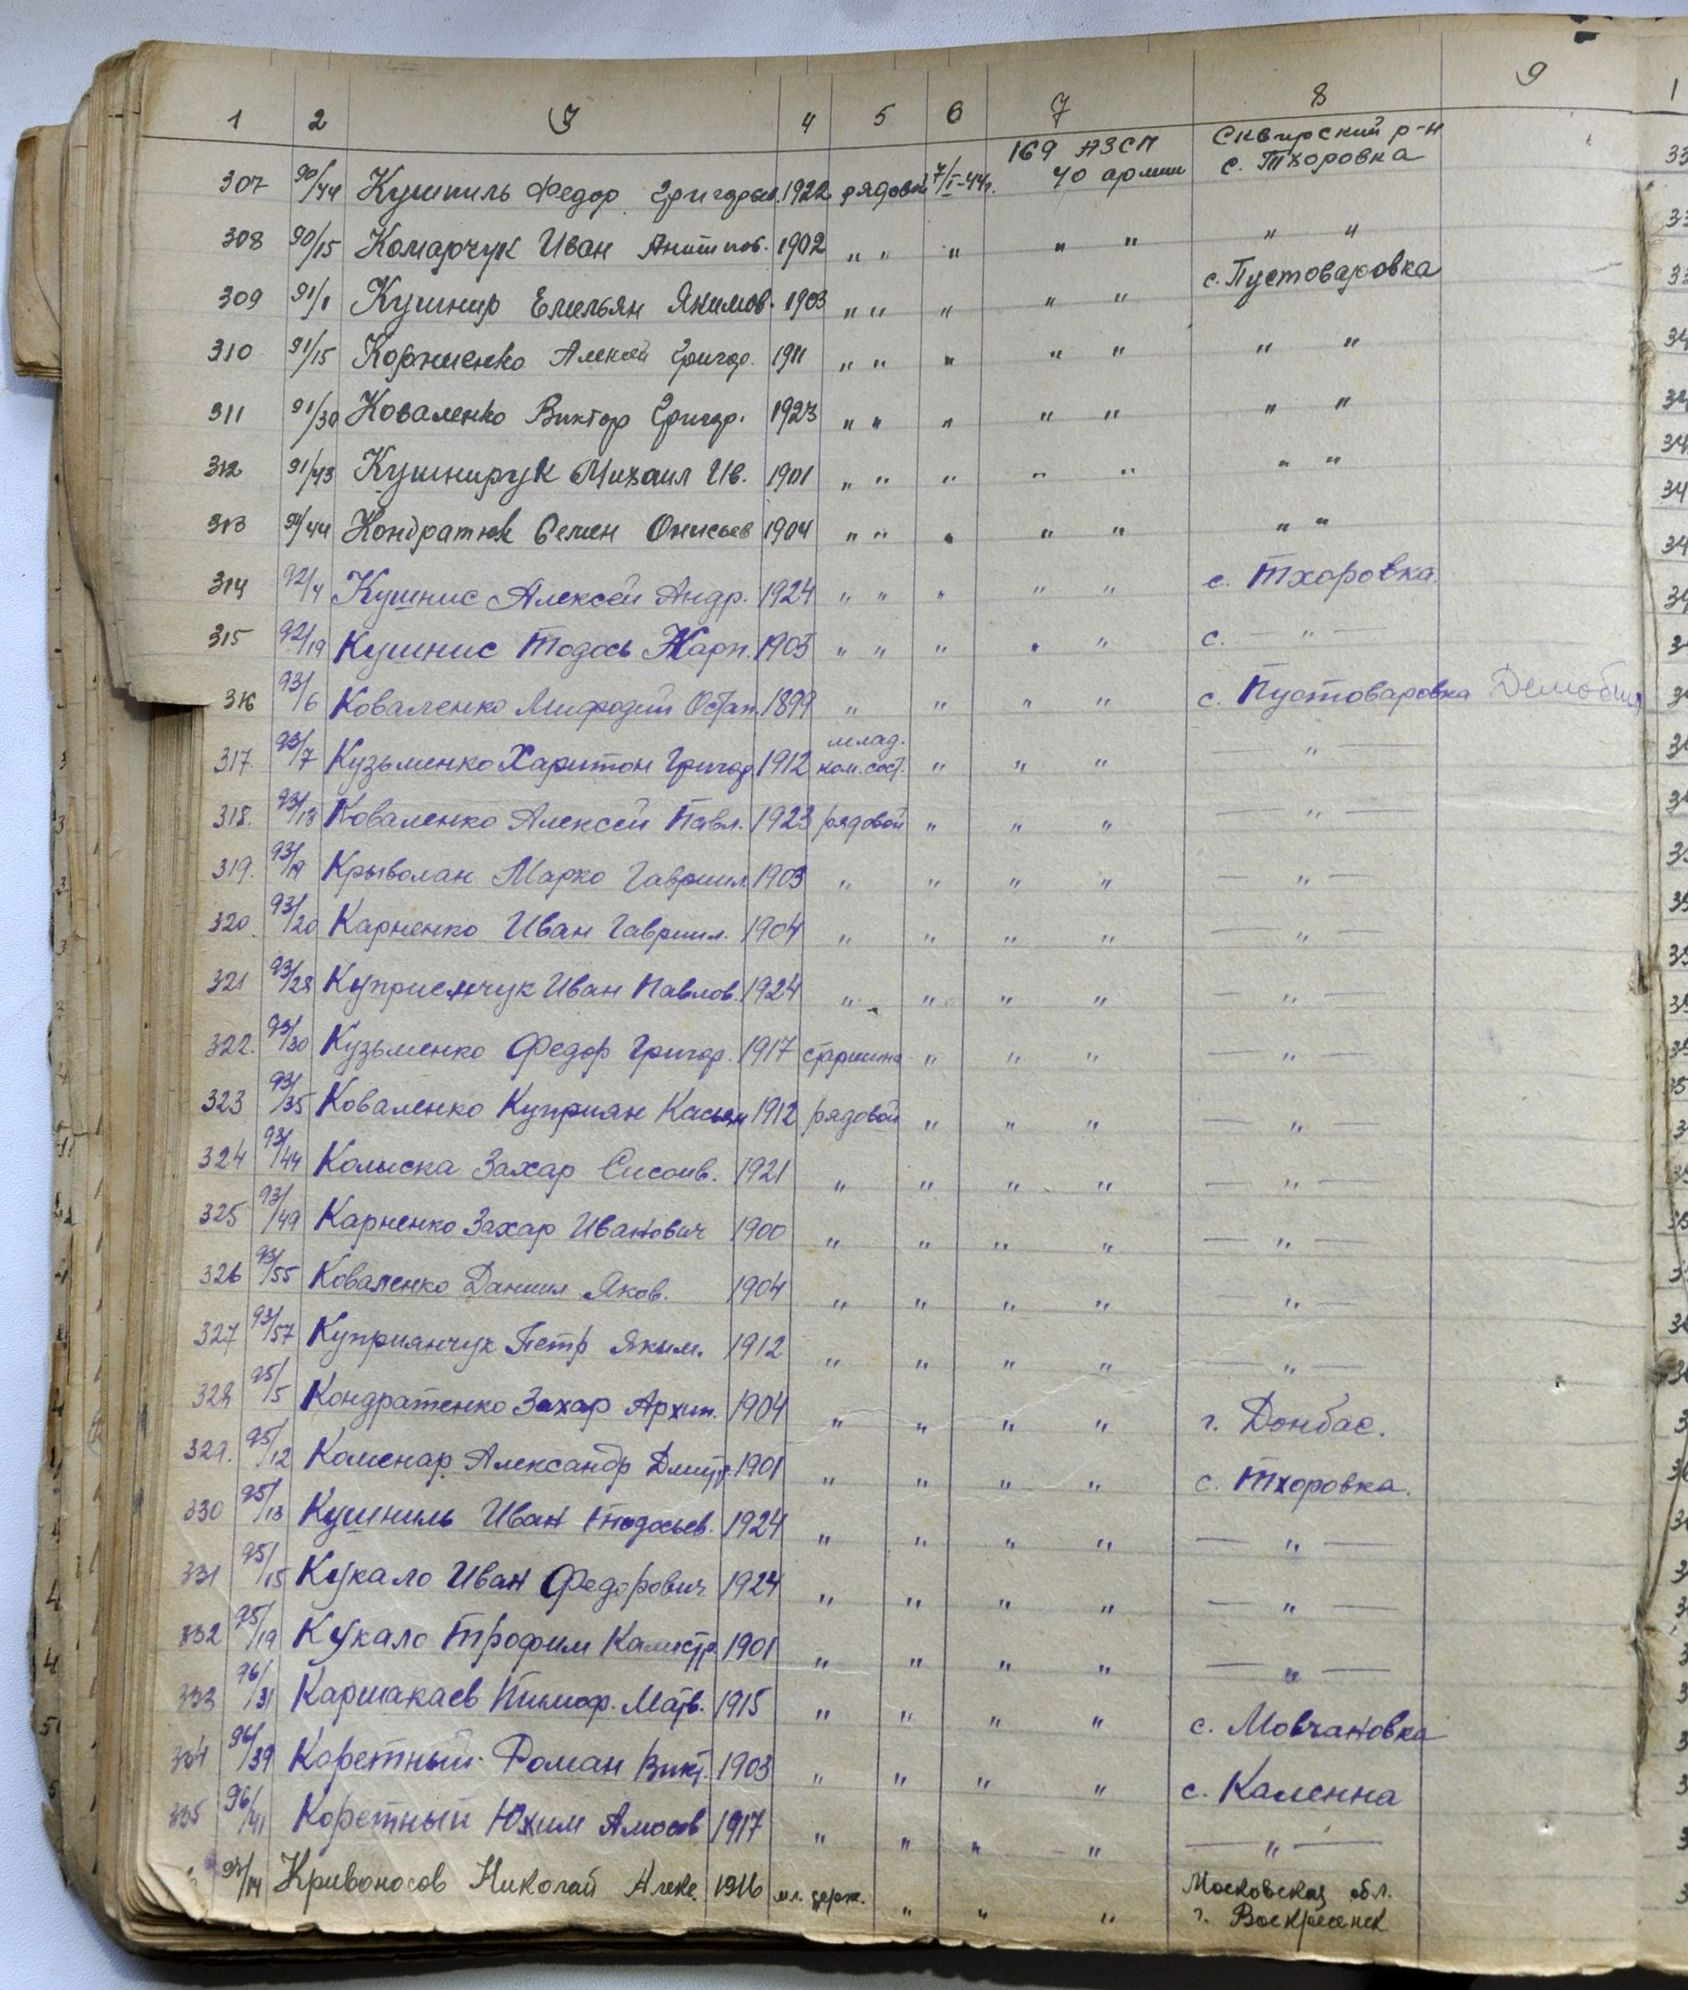 1 2 3 4 5 6 7 8 9
169 АЗСП Сквирский р-н
307 90/44 Кушниль Федор Григорьев. 1922 рядовой 7/I-44г. 40 армии с. Тхоровка
308 90/15 Комарчук Иван Антипов. 1902 " " " " " " "
309 91/1 Кушнир Емельян Якимов. 1903 " " " " " с. Пустоваровка
310 91/15 Корниенко Алексей Григор. 1911 " " " " " " "
311 91/30 Коваленко Виктор Григор. 1923 " " " " " " "
312 91/43 Кушнирук Михаил Ив. 1901 " " " " " " "
313 91/44 Кондратюк Семен Онисьев 1904 " " " " " " "
314 92/4 Кушнис Алексей Андр. 1924 " " " " " с. Тхоровка.
315 92/19 Кушнис Тодось Карп. 1903 " " " " " с. — " —
316 93/6 Коваленко Мифодий Остап. 1899 " " " " с. Пустоваровка
млад.
317 93/7 Кузьменко Харитон Григор. 1912 ком.сост. " " " — " —
318. 93/18 Коваленко Алексей Павл. 1923 рядовой " " " — " —
319. 93/19 Крыволап Марко Гавриил. 1903 " " " " — " —
320. 93/20 Карненко Иван Гавриил. 1904 " " " " — " —
321 93/28 Куприемчук Иван Павлов. 1924 " " " " — " —
322. 93/30 Кузьменко Федор Григор. 1917 старшина " " " — " —
323 93/35 Коваленко Куприян Касьян 1912 рядовой " " " — " —
324 93/44 Колыска Захар Сисоив. 1921 " " " " — " —
325 93/49 Карненко Захар Иванович 1900 " " " " — " —
326 93/55 Коваленко Даниил Яков. 1904 " " " " " —
327 93/57 Куприянчук Петр Яким. 1912 " " " " — " —
328 95/5 Кондратенко Захар Архип. 1904 " " " " г. Донбас.
329. 95/12 Коменар Александр Дмитр. 1901 " " " " с. Тхоровка.
330 95/13 Кушниль Иван Тодосьев. 1924 " " " " — " —
331 95/15 Кукало Иван Федорович 1924 " " " " — " —
332 95/19 Кукало Трофим Калистр. 1901 " " " " — " —
333 96/31 Каршакаев Тимоф. Матв. 1915 " " " " с. Мовчановка
334 96/39 Коретный Роман Викт. 1903 " " " " с. Каленна
335 96/41 Коретный Юхим Амосов 1917 " " " " — " —
Кривоносов Николай Алекс. 1916 мл. серж. " " " Московская обл.
г. Воскресенск